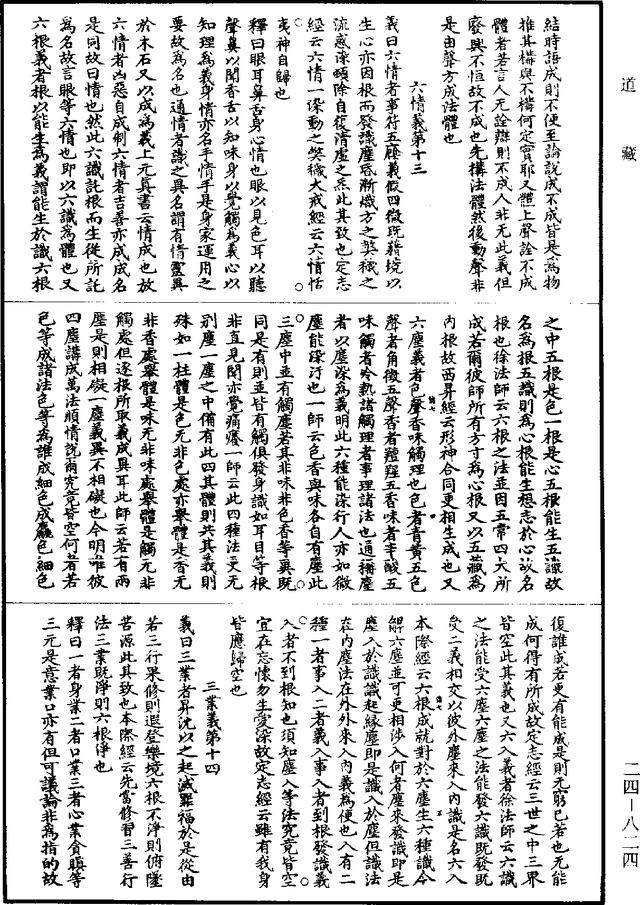 道藏
結時語成則不便至論說成不成皆是為物
推其構與不構何定實耶又體上聲詮不成
體者若言人无詮辯則不成人非无此義但
廢興不恒故不成也先構法體然後動聲非
是由聲方成法體也
六情義第十三
義曰六情者事符五
義假四微既藉境以
生心亦因根而發識塵惑漸熾方之獘穢之
流惑深頓除自復清虛之
此其致也定志
經云六情一染動之獘穢大戒經云六情恬
夷神自歸也
釋曰眼耳鼻舌身心情也眼以見色耳以聽
聲鼻以聞香舌以知味身以覺觸為義心以
知理為義身情亦名手情手是身家運用之
要故為名也通情者識之異名謂有情靈異
於木石又以成為義上元真書云情成也故
六情者凶惡自成制六情者吉善亦成成名
是同故曰情也然此六識託根而生從所託
為名故言眼等六情也即以六識為體也又
六根義者根以能生為義謂能生於識六根
之中五根是色一根是心五根能生五識故
名為根五識則為心根能生想恚於心故名
根也徐法師云六根之法並因五常四大所
成若爾彼師所有方寸為心根又以五藏為
內根故西昇經云形神合同更相生成也又
六塵義者色聲香味觸理也色者青黃五色
聲者角徵五聲香者羶腥五香味者辛酸五
味觸者冷熱諸觸理者事理諸法也通稱塵
者以塵染為義明此六種能染行人亦如微
塵能染汙也一師云色香與味各自有塵此
三塵中並有觸塵若其非味非色香等異既
同是有則並皆有觸俱發身識如耳目等根
非直見聞亦覺痛癢一師云此四種法更无
別塵一塵之中備有此四其體則共其義則
殊如一柱體是色无非色處亦舉體是香无
非香處舉體是味无非味處舉體是觸无非
觸處但逐根所取義成異耳此師云若有兩
塵是則相礙一塵義異不相礙也今明唯彼
四塵講成萬法順情說爾究竟皆空何者若
色等成諸法色等為誰成細色成麤色細色
復誰成若更有能成是則无窮已若也无能
成何得有所成故定志經云三世之中三界
皆空此其義也又六入義者徐法師云六識
之法能受六塵六塵之法能發六識既發既
受二義相交以彼外塵來入內識是名六入
本際經云六根成就對於六塵生六種識今
解六塵並可更相涉入何者塵來發識即是
塵入於識識起緣塵即是識入於塵但識法
在內塵法在外外來入內義為便也入有二
種一者事入二者義入事入者到根發識義
入者不到根知也須知塵入等法究竟皆空
宜在忘懷勿生愛染故定志經云雖有我身
皆應歸空也
三業義第十四
義曰三業者昇沉以之起滅罪福於是從由
若三行果修則遐登樂境六根不淨則俯墜
苦源此其致也本際經云先當修習三善行
法三業既淨則六根淨也
釋曰一者身業二者口業三者心業貪瞋等
三元是意業口亦有但可議論非為指的故
二四—八二四